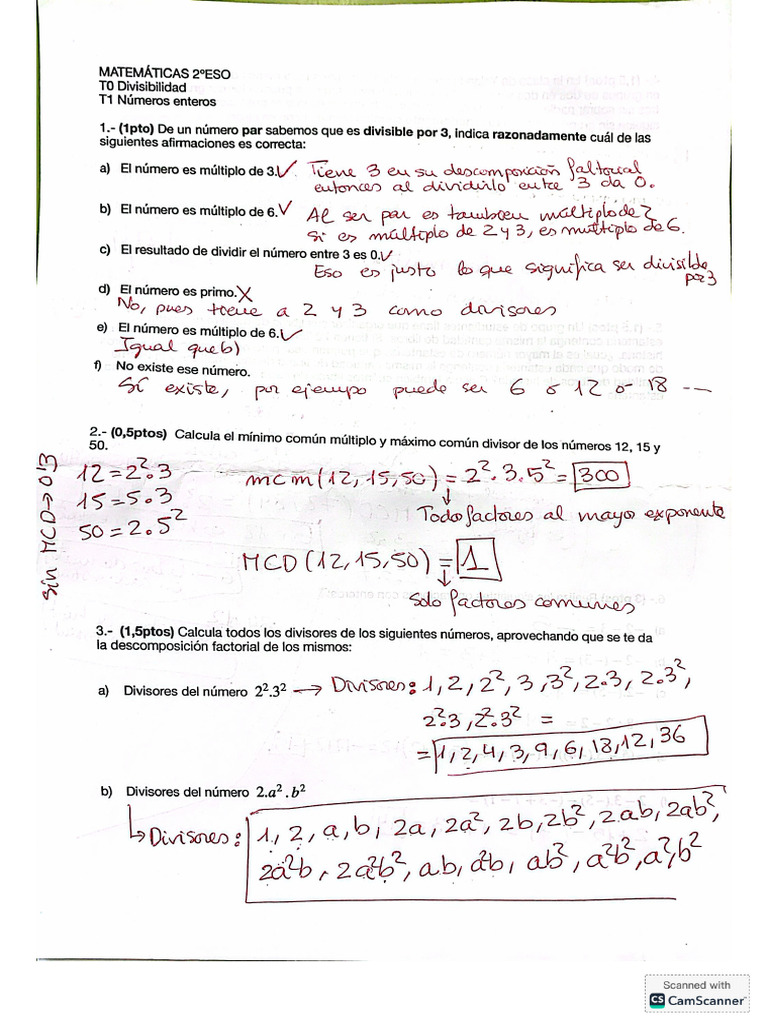 MATEMÁTICAS 2ºESO
T0 Divisibilidad
T1 Números enteros
1.- (1pto) De un número par sabemos que es divisible por 3, indica razonadamente cuál de las
siguientes afirmaciones es correcta:
a) El número es múltiplo de 3. ✓ Tiene 3 en su descomposición factorial
entonces al dividirlo entre 3 da 0.
b) El número es múltiplo de 6. ✓ Al ser par es tambien múltiplo de 2
Si es múltiplo de 2 y 3, es múltiplo de 6.
c) El resultado de dividir el número entre 3 es 0. ✓
Eso es justo lo que significa ser divisible
por 3
d) El número es primo. X
No, pues tiene a 2 y 3 como divisores
e) El número es múltiplo de 6. ✓
Igual que b)
f) No existe ese número.
Sí existe, por ejempo puede ser 6 o 12 o 18 ---
2.- (0,5ptos) Calcula el mínimo común múltiplo y máximo común divisor de los números 12, 15 y
50.
12 = 2².3
15 = 5.3
50 = 2.5²
sin MCD → 0'3
mcm (12, 15, 50) = 2².3.5² = 300
Todo factores al mayo exponente
MCD (12, 15, 50) = 1
Solo factores comunes
3.- (1,5ptos) Calcula todos los divisores de los siguientes números, aprovechando que se te da
la descomposición factorial de los mismos:
a) Divisores del número 2².3² → Divisores: 1, 2, 2², 3, 3², 2.3, 2.3²,
2².3, 2².3² =
= 1, 2, 4, 3, 9, 6, 18, 12, 36
b) Divisores del número 2.a².b²
Divisores: 1, 2, a, b, 2a, 2a², 2b, 2b², 2ab, 2ab²,
2a²b, 2a²b², ab, a²b, ab², a²b², a², b²
Scanned with
CS CamScanner